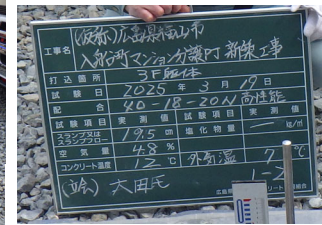 工事名 (仮称)広島県福山市
入船町マンション分譲町 新築工事
打込箇所 3F躯体
試験日 2025年3月19日
配合 40-18-20N 高性能
試験項目 実測値 試験項目 実測値
スランプ又はスランプフロー 19.5 cm 塩化物量 — kg/㎥
空気量 4.8 %
コンクリート温度 12 ℃ 外気温 7 ℃
(立会) 大田氏 1-2